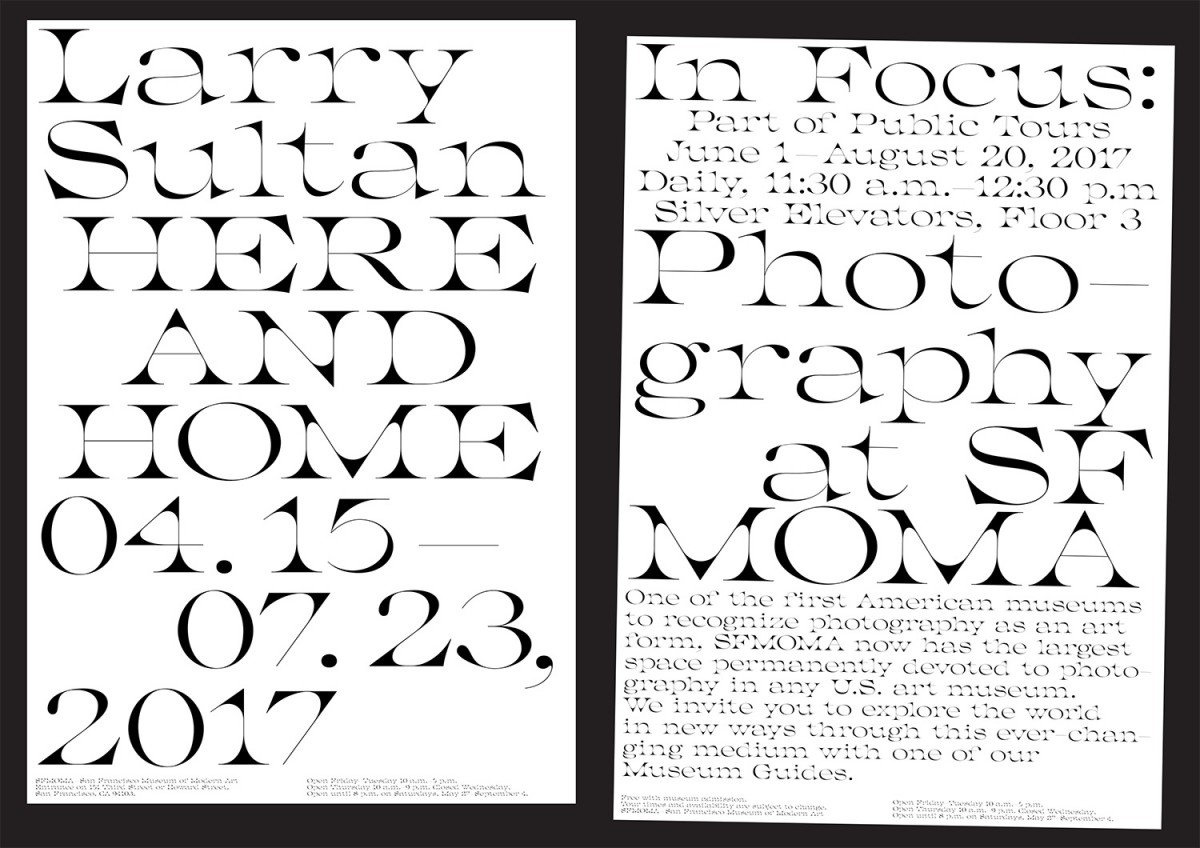 Larry
Sultan
HERE
AND
HOME
04. 15 —
07. 23,
2017
SFMOMA San Francisco Museum of Modern Art
Entrance on 151 Third Street or Howard Street,
San Francisco, CA 94103.
Open Friday–Tuesday 10 a.m.–5 p.m.
Open Thursday 10 a.m.–9 p.m. Closed Wednesday.
Open until 8 p.m. on Saturdays, May 27–September 4.
In Focus:
Part of Public Tours
June 1—August 20, 2017
Daily, 11:30 a.m.—12:30 p.m
Silver Elevators, Floor 3
Photo—
graphy
at SF
MOMA
One of the first American museums
to recognize photography as an art
form, SFMOMA now has the largest
space permanently devoted to photo—
graphy in any U.S. art museum.
We invite you to explore the world
in new ways through this ever-chan—
ging medium with one of our
Museum Guides.
Free with museum admission.
Tour times and availability are subject to change.
SFMOMA San Francisco Museum of Modern Art
Open Friday–Tuesday 10 a.m.–5 p.m.
Open Thursday 10 a.m.–9 p.m. Closed Wednesday.
Open until 8 p.m. on Saturdays, May 27–September 4.